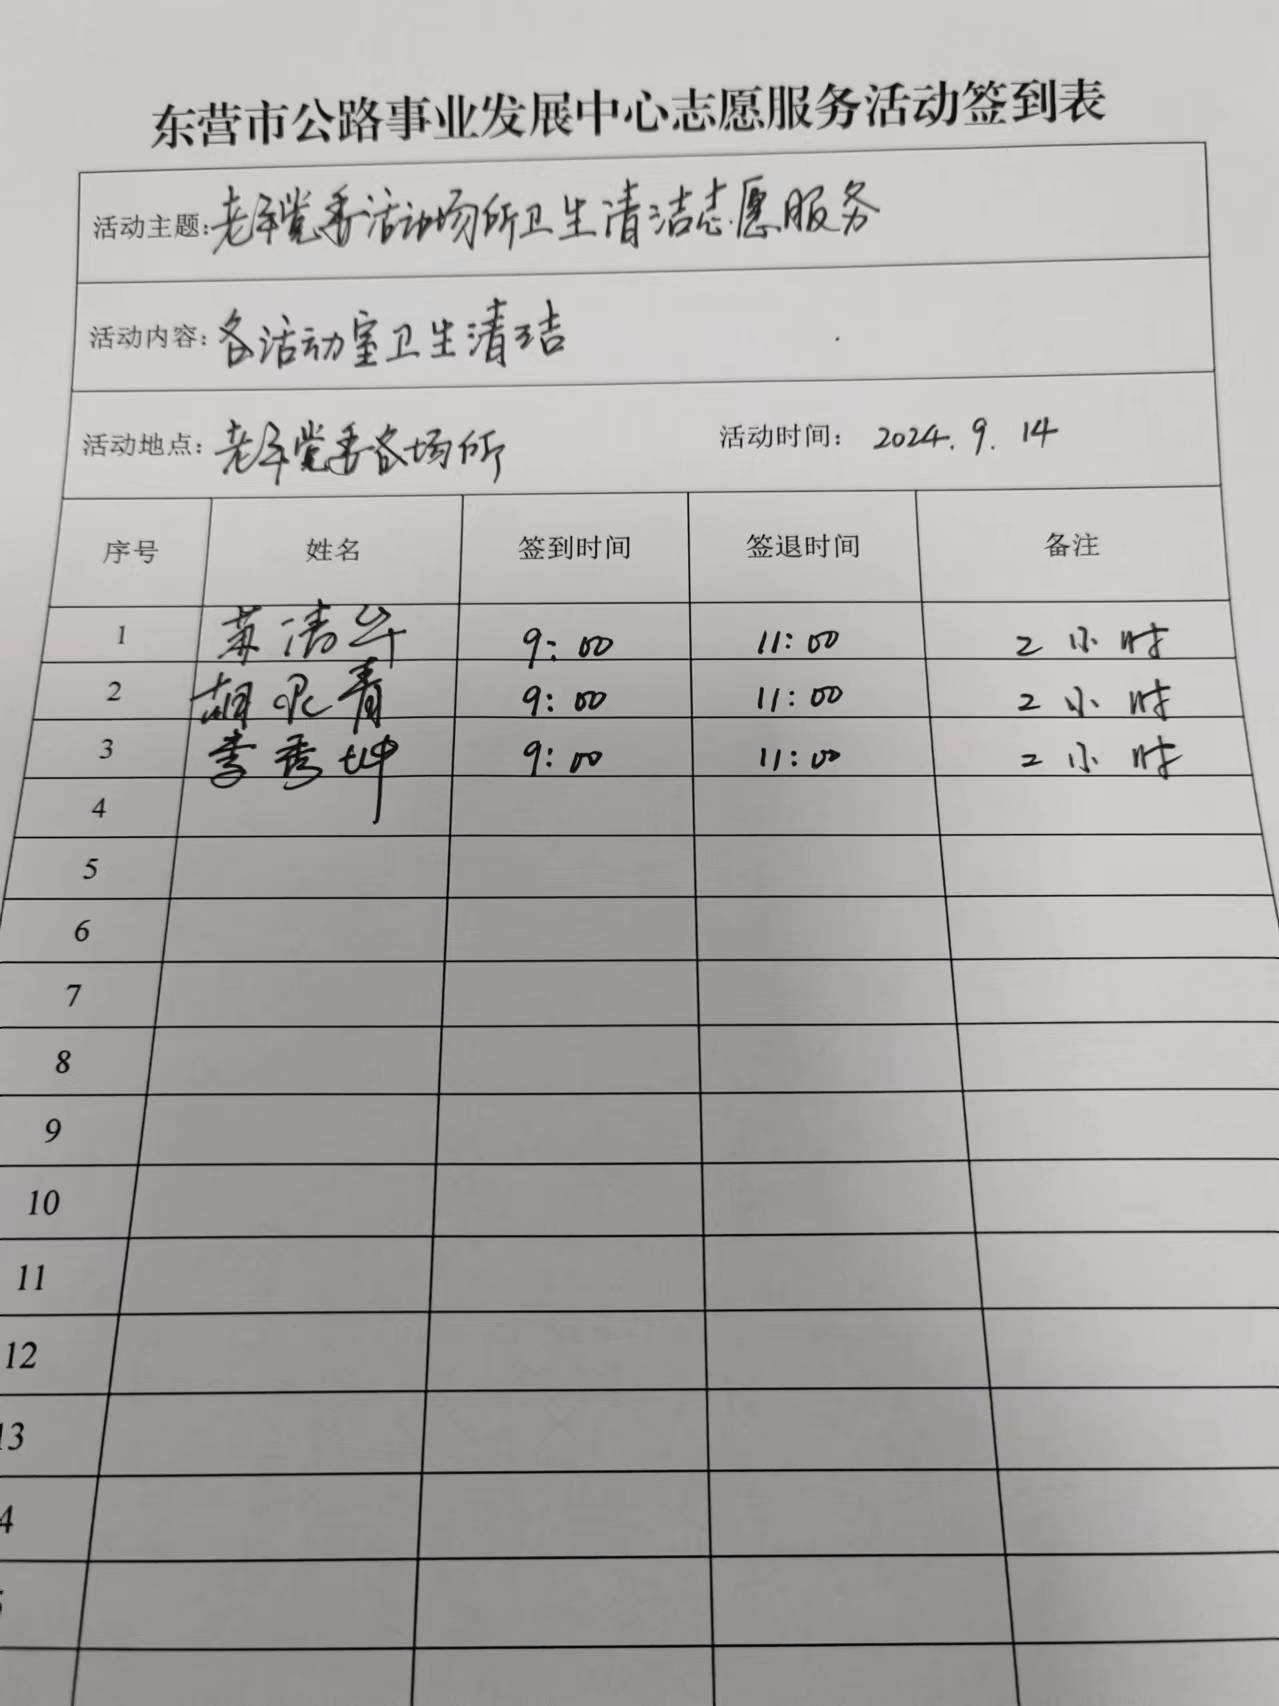 东营市公路事业发展中心志愿服务活动签到表
活动主题: 老年党委活动场所卫生清洁志愿服务
活动内容: 各活动室卫生清洁
活动地点: 老年党委各场所 活动时间: 2024.9.14
序号 姓名 签到时间 签退时间 备注
1 苏清华 9:00 11:00 2小时
2 胡 青 9:00 11:00 2小时
3 李秀坤 9:00 11:00 2小时
4
5
6
7
8
9
10
11
12
13
4